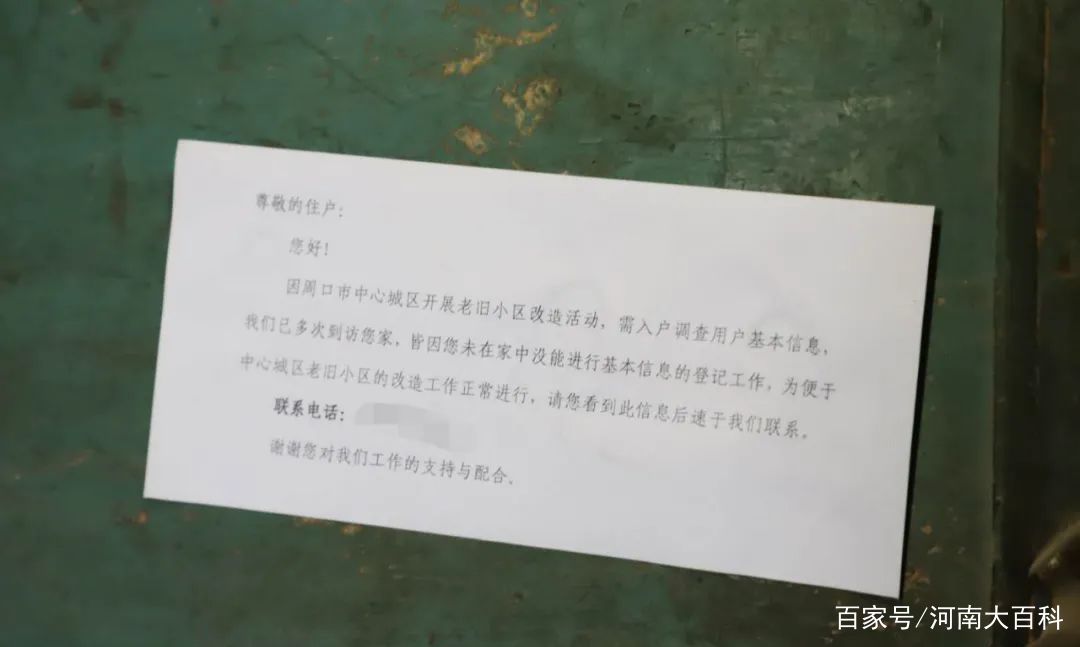 尊敬的住户：
您好！
因周口市中心城区开展老旧小区改造活动，需入户调查用户基本信息，
我们已多次到访您家，皆因您未在家中没能进行基本信息的登记工作，为便于
中心城区老旧小区的改造工作正常进行，请您看到此信息后速于我们联系。
联系电话：
谢谢您对我们工作的支持与配合。
百家号/河南大百科